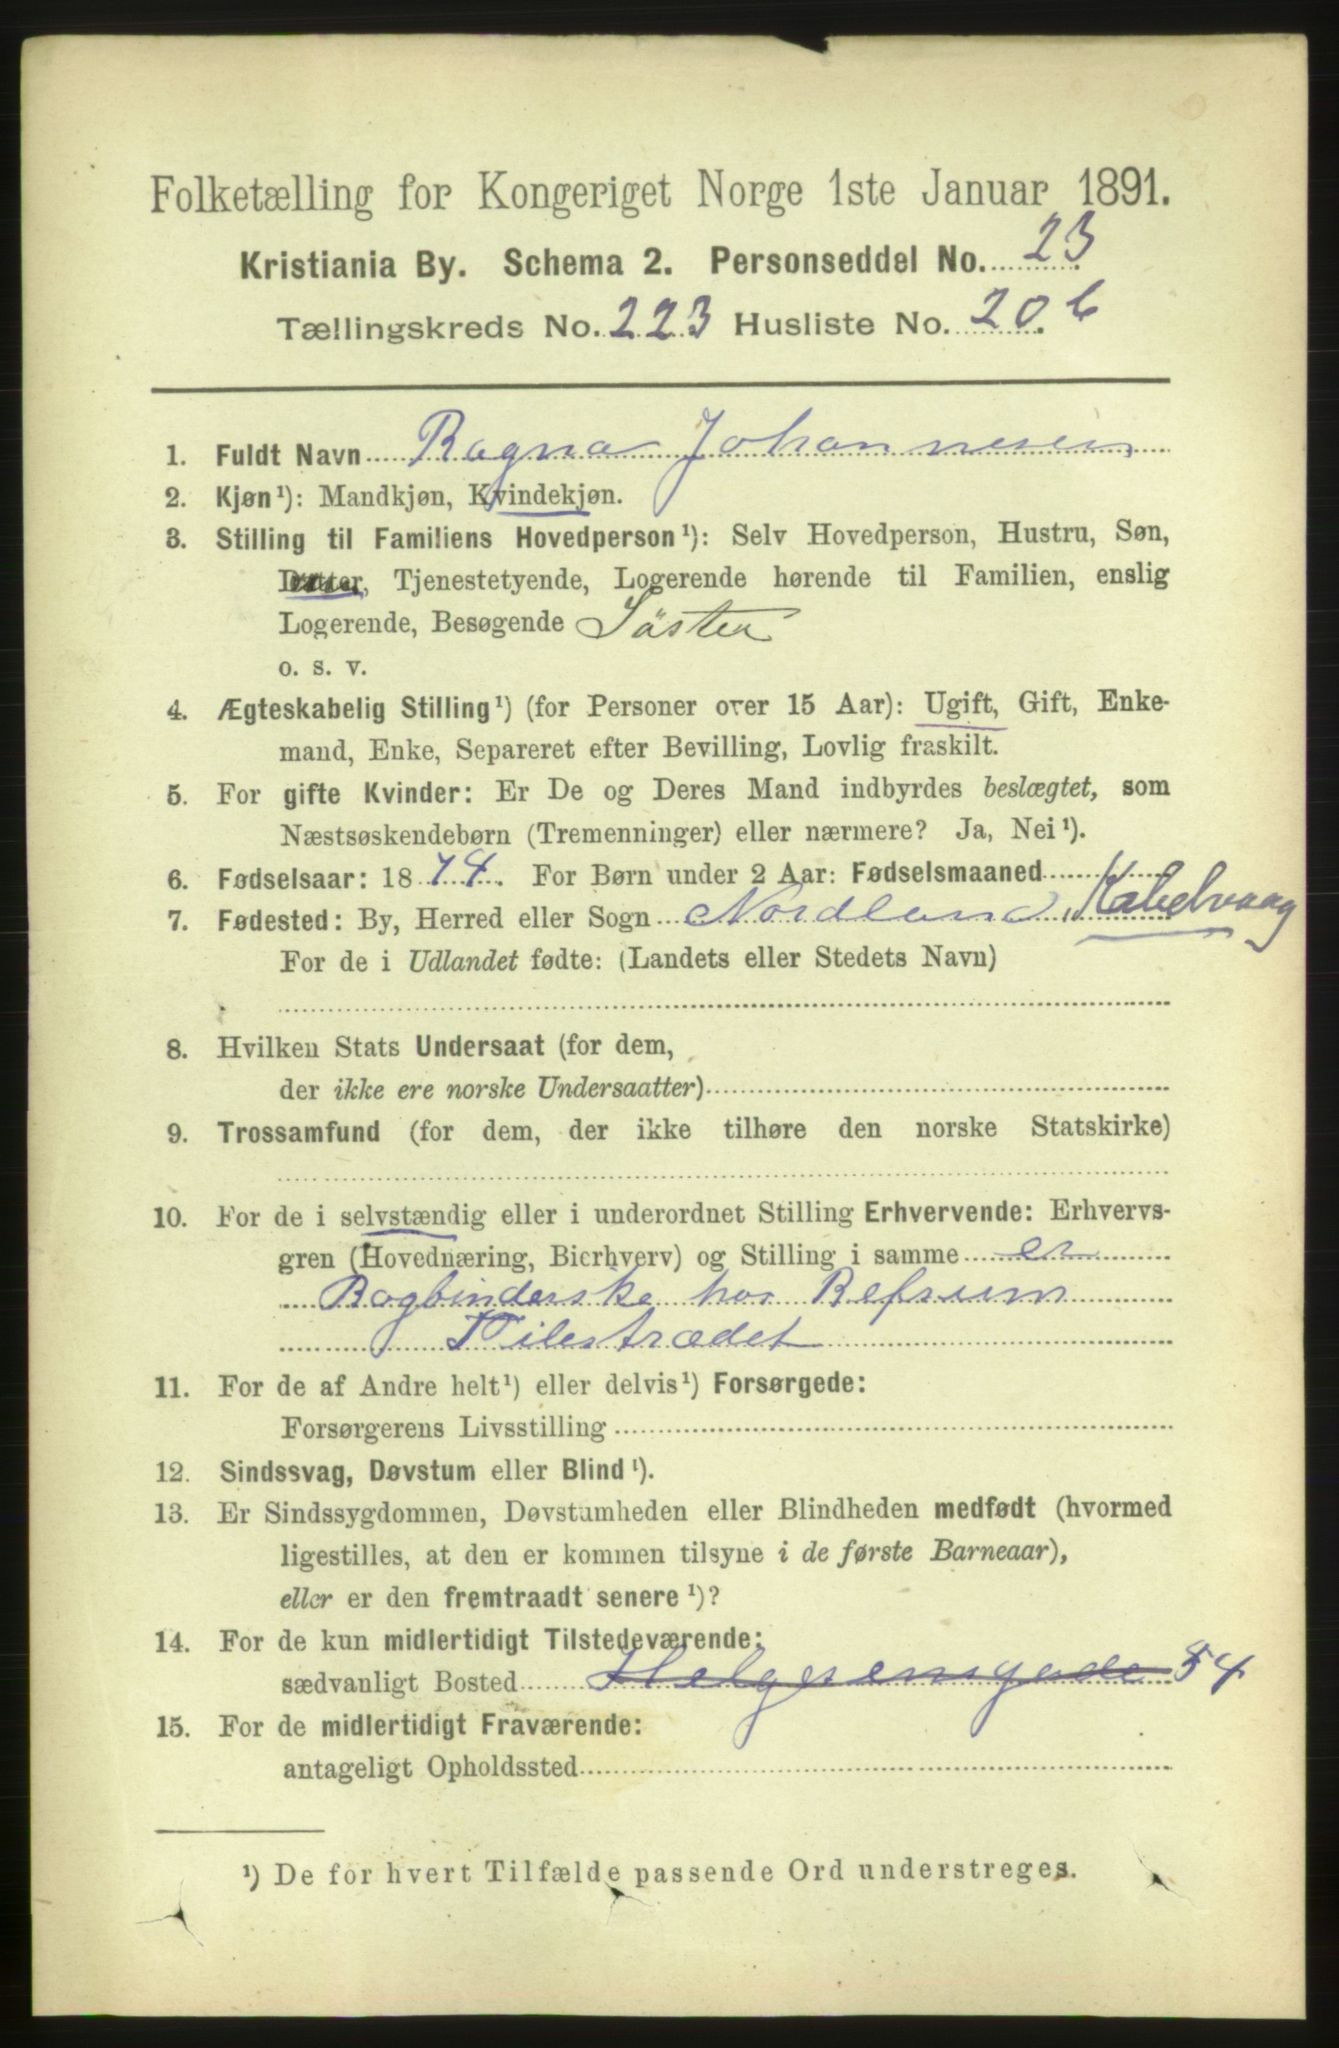 Folketælling for Kongeriget Norge 1ste Januar 1891.
Kristiania By. Schema 2. Personseddel No. 23
Tællingskreds No. 223 Husliste No. 20. b
1. Fuldt Navn Ragna Johannesen
2. Kjøn¹): Mandkjøn, Kvindekjøn.
3. Stilling til Familiens Hovedperson¹): Selv Hovedperson, Hustru, Søn,
Datter, Tjenestetyende, Logerende hørende til Familien, enslig
Logerende, Besøgende Söster
o. s. v.
4. Ægteskabelig Stilling¹) (for Personer over 15 Aar): Ugift, Gift, Enke-
mand, Enke, Separeret efter Bevilling, Lovlig fraskilt.
5. For gifte Kvinder: Er De og Deres Mand indbyrdes beslægtet, som
Næstsøskendebørn (Tremenninger) eller nærmere? Ja, Nei¹).
6. Fødselsaar: 1874. For Børn under 2 Aar: Fødselsmaaned
7. Fødested: By, Herred eller Sogn Nordland, Kabelvaag
For de i Udlandet fødte: (Landets eller Stedets Navn)
8. Hvilken Stats Undersaat (for dem,
der ikke ere norske Undersaatter)
9. Trossamfund (for dem, der ikke tilhøre den norske Statskirke)
10. For de i selvstændig eller i underordnet Stilling Erhvervende: Erhvervs-
gren (Hovednæring, Bierhverv) og Stilling i samme er
Bogbinderske hos Refsum
Pilestrædet
11. For de af Andre helt¹) eller delvis¹) Forsørgede:
Forsørgerens Livsstilling
12. Sindssvag, Døvstum eller Blind¹).
13. Er Sindssygdommen, Døvstumheden eller Blindheden medfødt (hvormed
ligestilles, at den er kommen tilsyne i de første Barneaar),
eller er den fremtraadt senere¹)?
14. For de kun midlertidigt Tilstedeværende:
sædvanligt Bosted Helgesensgade 54
15. For de midlertidigt Fraværende:
antageligt Opholdssted
¹) De for hvert Tilfælde passende Ord understreges.